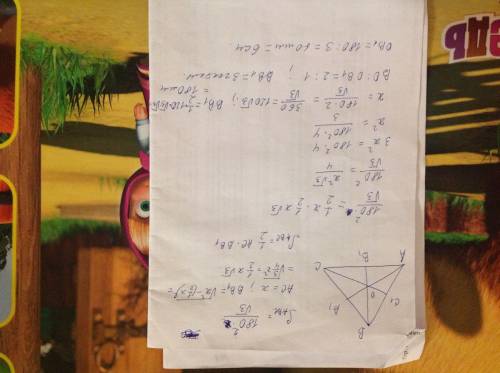 B
C₁
A₁
O
A
B₁
C
S_ABC = 180²/√3
AC = x; BB₁ = √(x²-(½x)²) =
= √(3x²/4) = ½x√3
S_ABC = ½ AC·BB₁
180²/√3 = ½ x · ½ x√3
180²/√3 = x²√3/4
3x² = 180²·4
x² = 180²·4/3
x = 180·2/√3 = 360/√3 = 120√3; BB₁ = ½·120√3·√3 =
= 180 мм
BO:OB₁ = 2:1; BB₁ = 3 части
OB₁ = 180:3 = 60 мм = 6 см
ЕДЬ